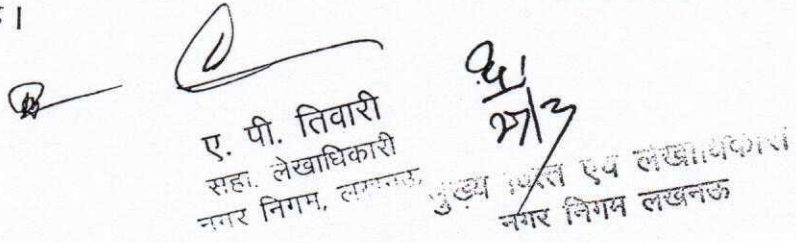 ।
27/3
ए. पी. तिवारी
सहा. लेखाधिकारी
नगर निगम, लखनऊ
मुख्य वित्त एवं लेखाधिकारी
नगर निगम लखनऊ